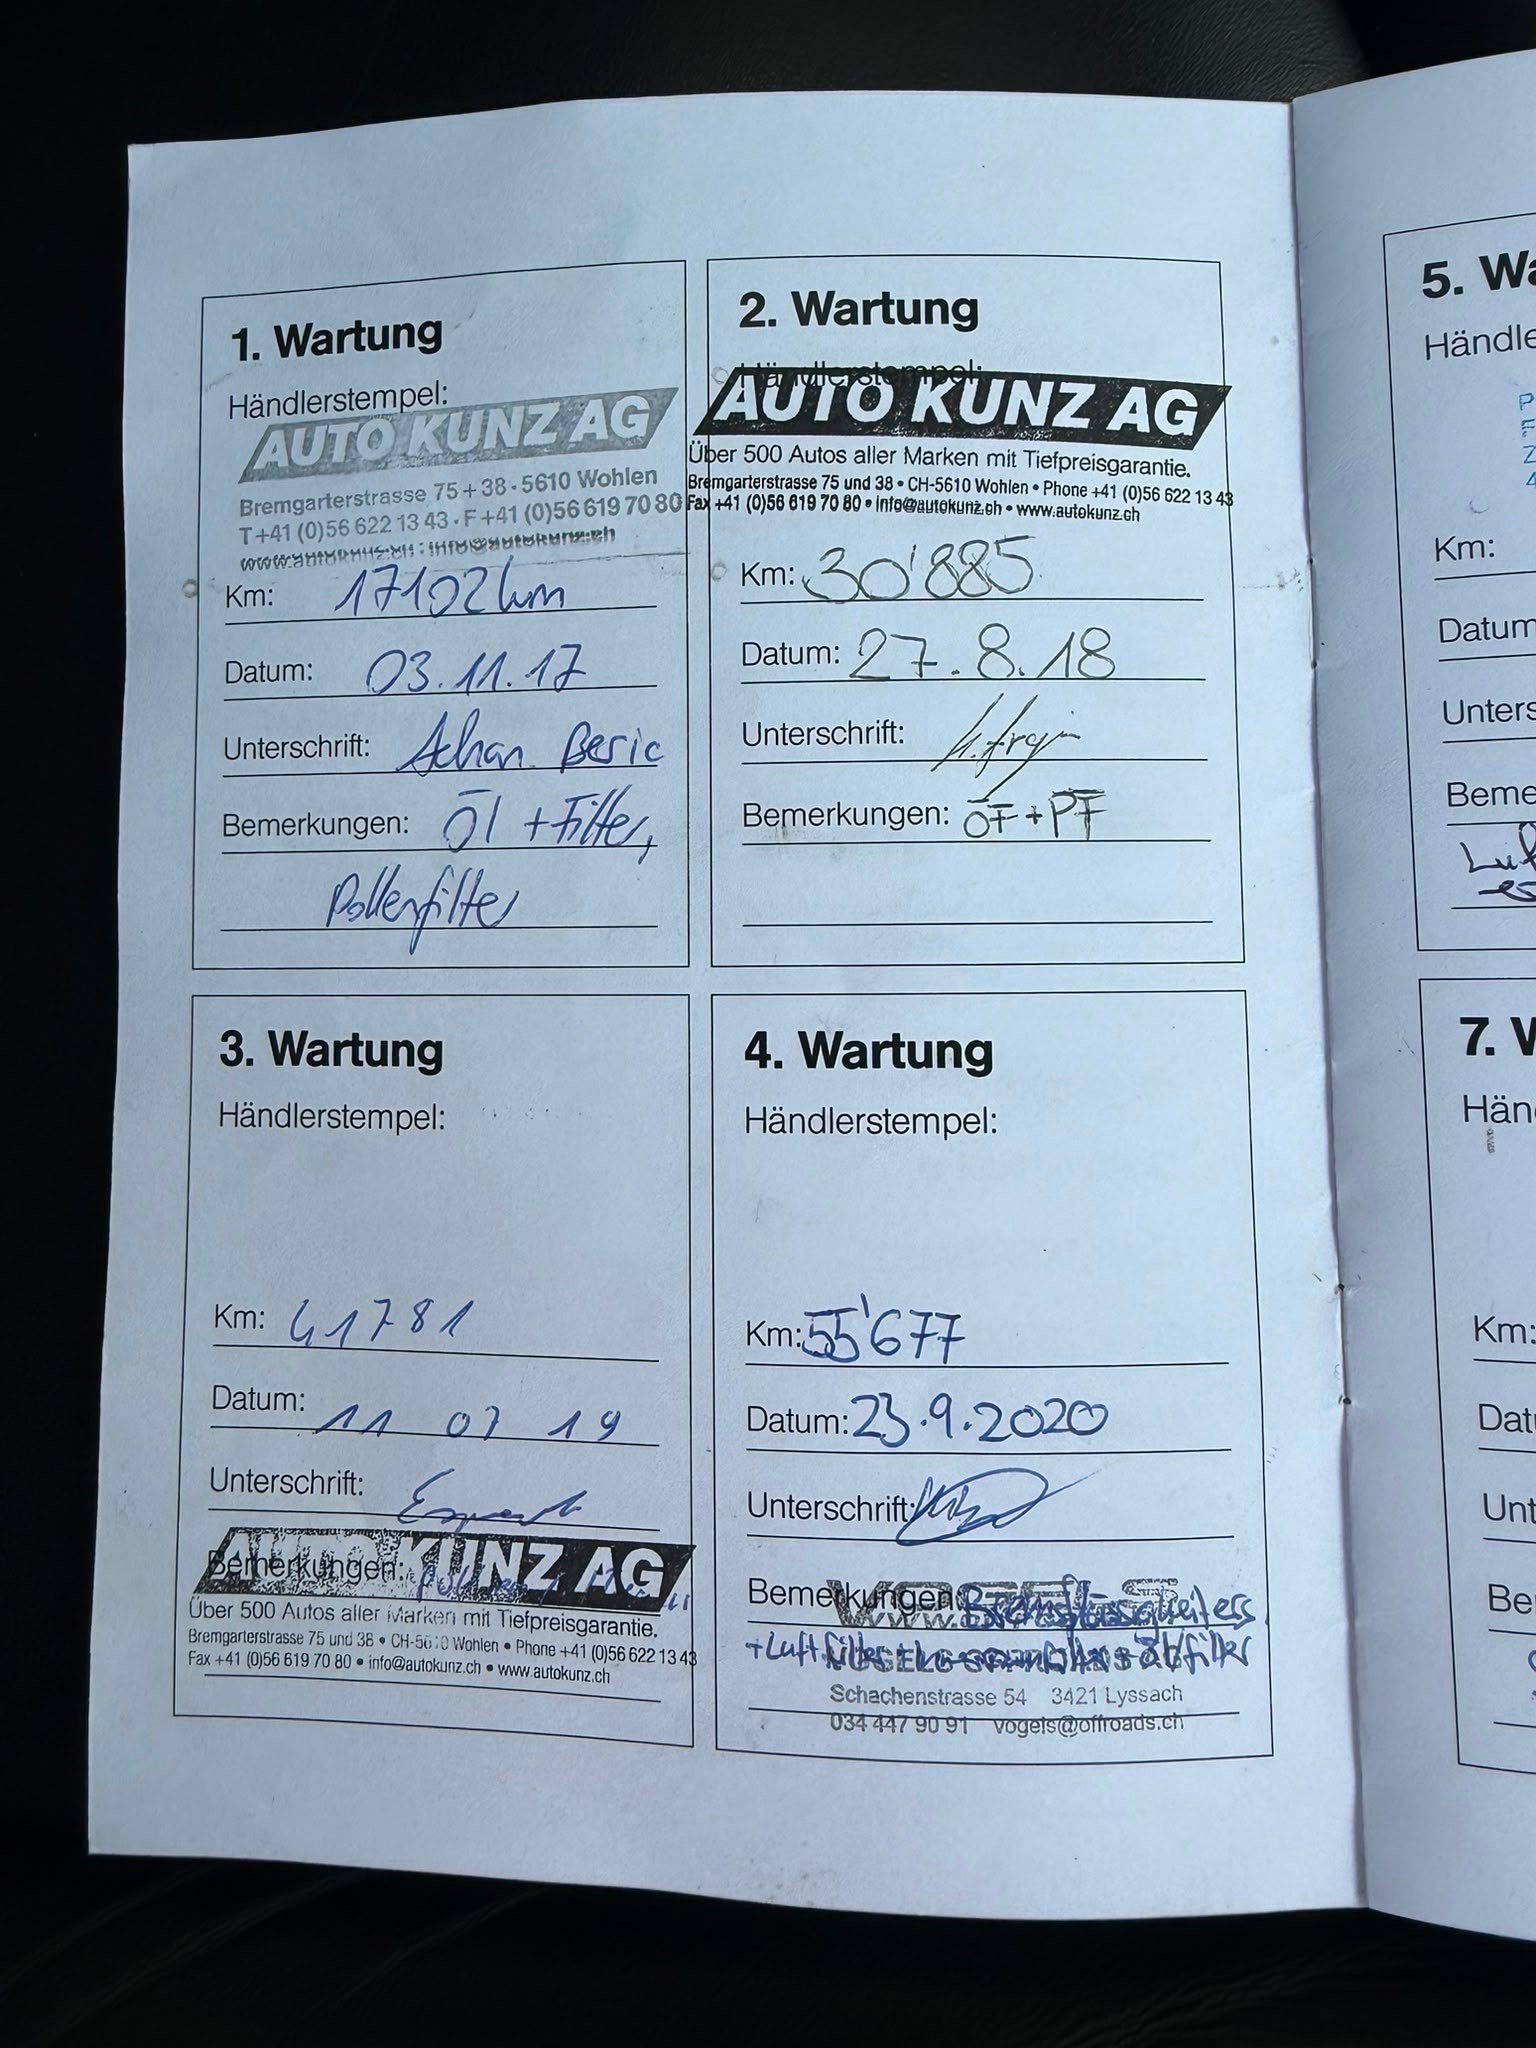 1. Wartung
Händlerstempel:
AUTO KUNZ AG
Bremgarterstrasse 75 + 38 · 5610 Wohlen
T +41 (0)56 622 13 43 · F +41 (0)56 619 70 80
www.autokunz.ch · info@autokunz.ch
Km: 17102 km
Datum: 03.11.17
Unterschrift: Beric
Bemerkungen: Öl + Filter,
Pollenfilter
2. Wartung
Händlerstempel:
AUTO KUNZ AG
Über 500 Autos aller Marken mit Tiefpreisgarantie.
Bremgarterstrasse 75 und 38 • CH-5610 Wohlen • Phone +41 (0)56 622 13 43
Fax +41 (0)56 619 70 80 • info@autokunz.ch • www.autokunz.ch
Km: 30'885
Datum: 27.8.18
Unterschrift:
Bemerkungen: ÖF + PF
3. Wartung
Händlerstempel:
Km: 41781
Datum: 11 07 19
Unterschrift:
AUTO KUNZ AG
Bemerkungen:
Über 500 Autos aller Marken mit Tiefpreisgarantie.
Bremgarterstrasse 75 und 38 • CH-5610 Wohlen • Phone +41 (0)56 622 13 43
Fax +41 (0)56 619 70 80 • info@autokunz.ch • www.autokunz.ch
4. Wartung
Händlerstempel:
Km: 55'677
Datum: 23.9.2020
Unterschrift:
Bemerkungen:
+ Luftfilter + Ölfilter
Schachenstrasse 54 3421 Lyssach
034 447 90 91 vogels@offroads.ch
5. Wa
Händle
Km:
Datum
Unters
Beme
Luf
7. W
Hän
Km:
Dat
Unt
Be